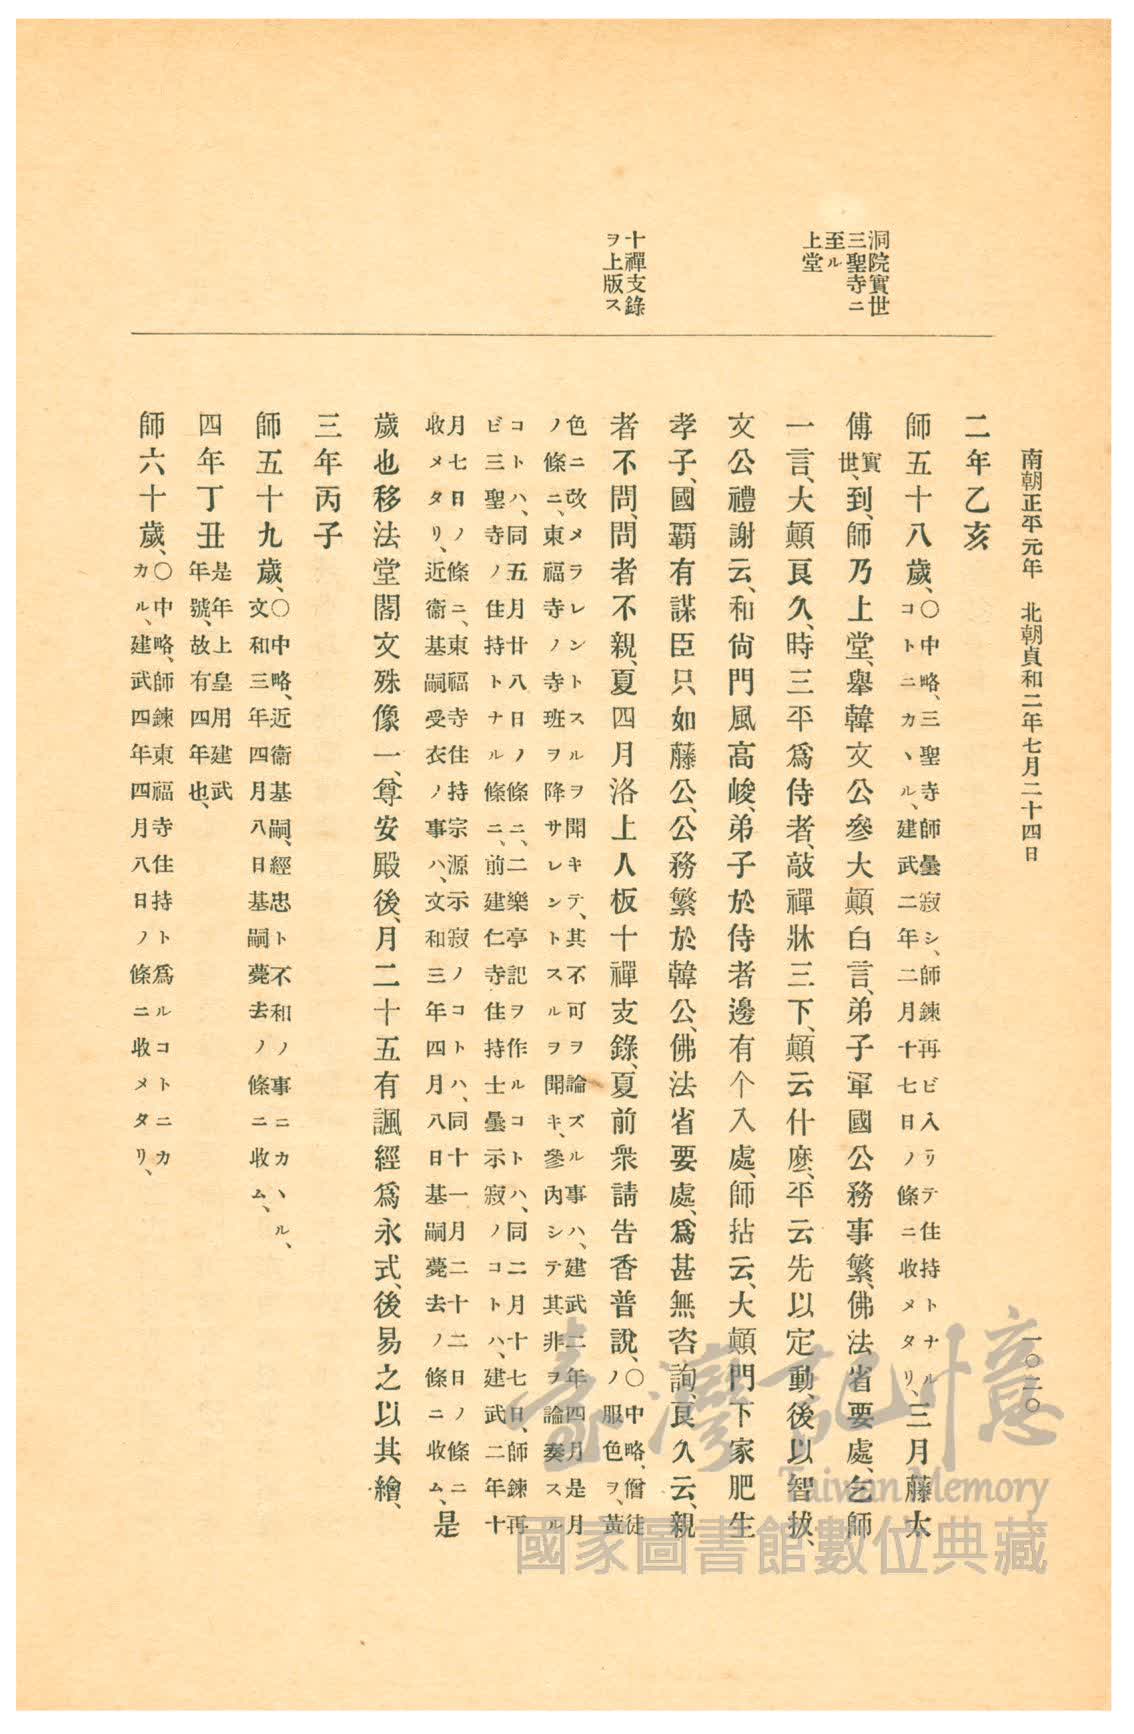 南朝正平元年　北朝貞和二年七月二十四日
一〇二〇
洞院實世
三聖寺ニ
至ル
上堂
十禪支錄
ヲ上版ス
二年乙亥
師五十八歲、〇中略、三聖寺師曇寂シ、師鍊再ビ入リテ住持トナル
コトニカヽル、建武二年二月十七日ノ條ニ收メタリ、三月藤太
傅實
世、到、師乃上堂、擧韓文公參大顚、白言、弟子軍國公務事繁、佛法省要處、乞師
一言、大顚良久、時三平爲侍者、敲禪牀三下、顚云什麼、平云先以定動、後以智拔、
文公禮謝云、和尙門風高峻、弟子於侍者邊有个入處、師拈云、大顚門下家肥生
孝子、國覇有謀臣只如藤公、公務繁於韓公、佛法省要處、爲甚無咨詢、良久云、親
者不問、問者不親、夏四月洛上人板十禪支錄、夏前衆請告香普說、〇中略、僧徒
ノ服色ヲ、黃
色ニ改メラレントスルヲ聞キテ、其不可ヲ論ズル事ハ、建武二年四月是月
ノ條ニ、東福寺ノ寺班ヲ降サレントスルヲ聞キ、參內シテ其非ヲ論奏スル
コトハ、同五月廿八日ノ條ニ、二樂亭記ヲ作ルコトハ、同二月十七日、師鍊再
ビ三聖寺ノ住持トナル條ニ、前建仁寺住持士曇示寂ノコトハ、建武二年十
月七日ノ條ニ、東福寺住持宗源示寂ノコトハ、同十一月二十二日ノ條ニ
收メタリ、近衞基嗣受衣ノ事ハ、文和三年四月八日基嗣薨去ノ條ニ收ム、是
歲也移法堂閣文殊像一、尊安殿後、月二十五有諷經爲永式、後易之以其繪、
三年丙子
師五十九歲、〇中略、近衞基嗣、經忠ト不和ノ事ニカヽル、
文和三年四月八日基嗣薨去ノ條ニ收ム、
四年丁丑是年上皇用建武
年號、故有四年也、
師六十歲、〇中略、師鍊東福寺住持ト爲ルコトニカ
カル、建武四年四月八日ノ條ニ收メタリ、
臺灣記憶
Taiwan Memory
國家圖書館數位典藏